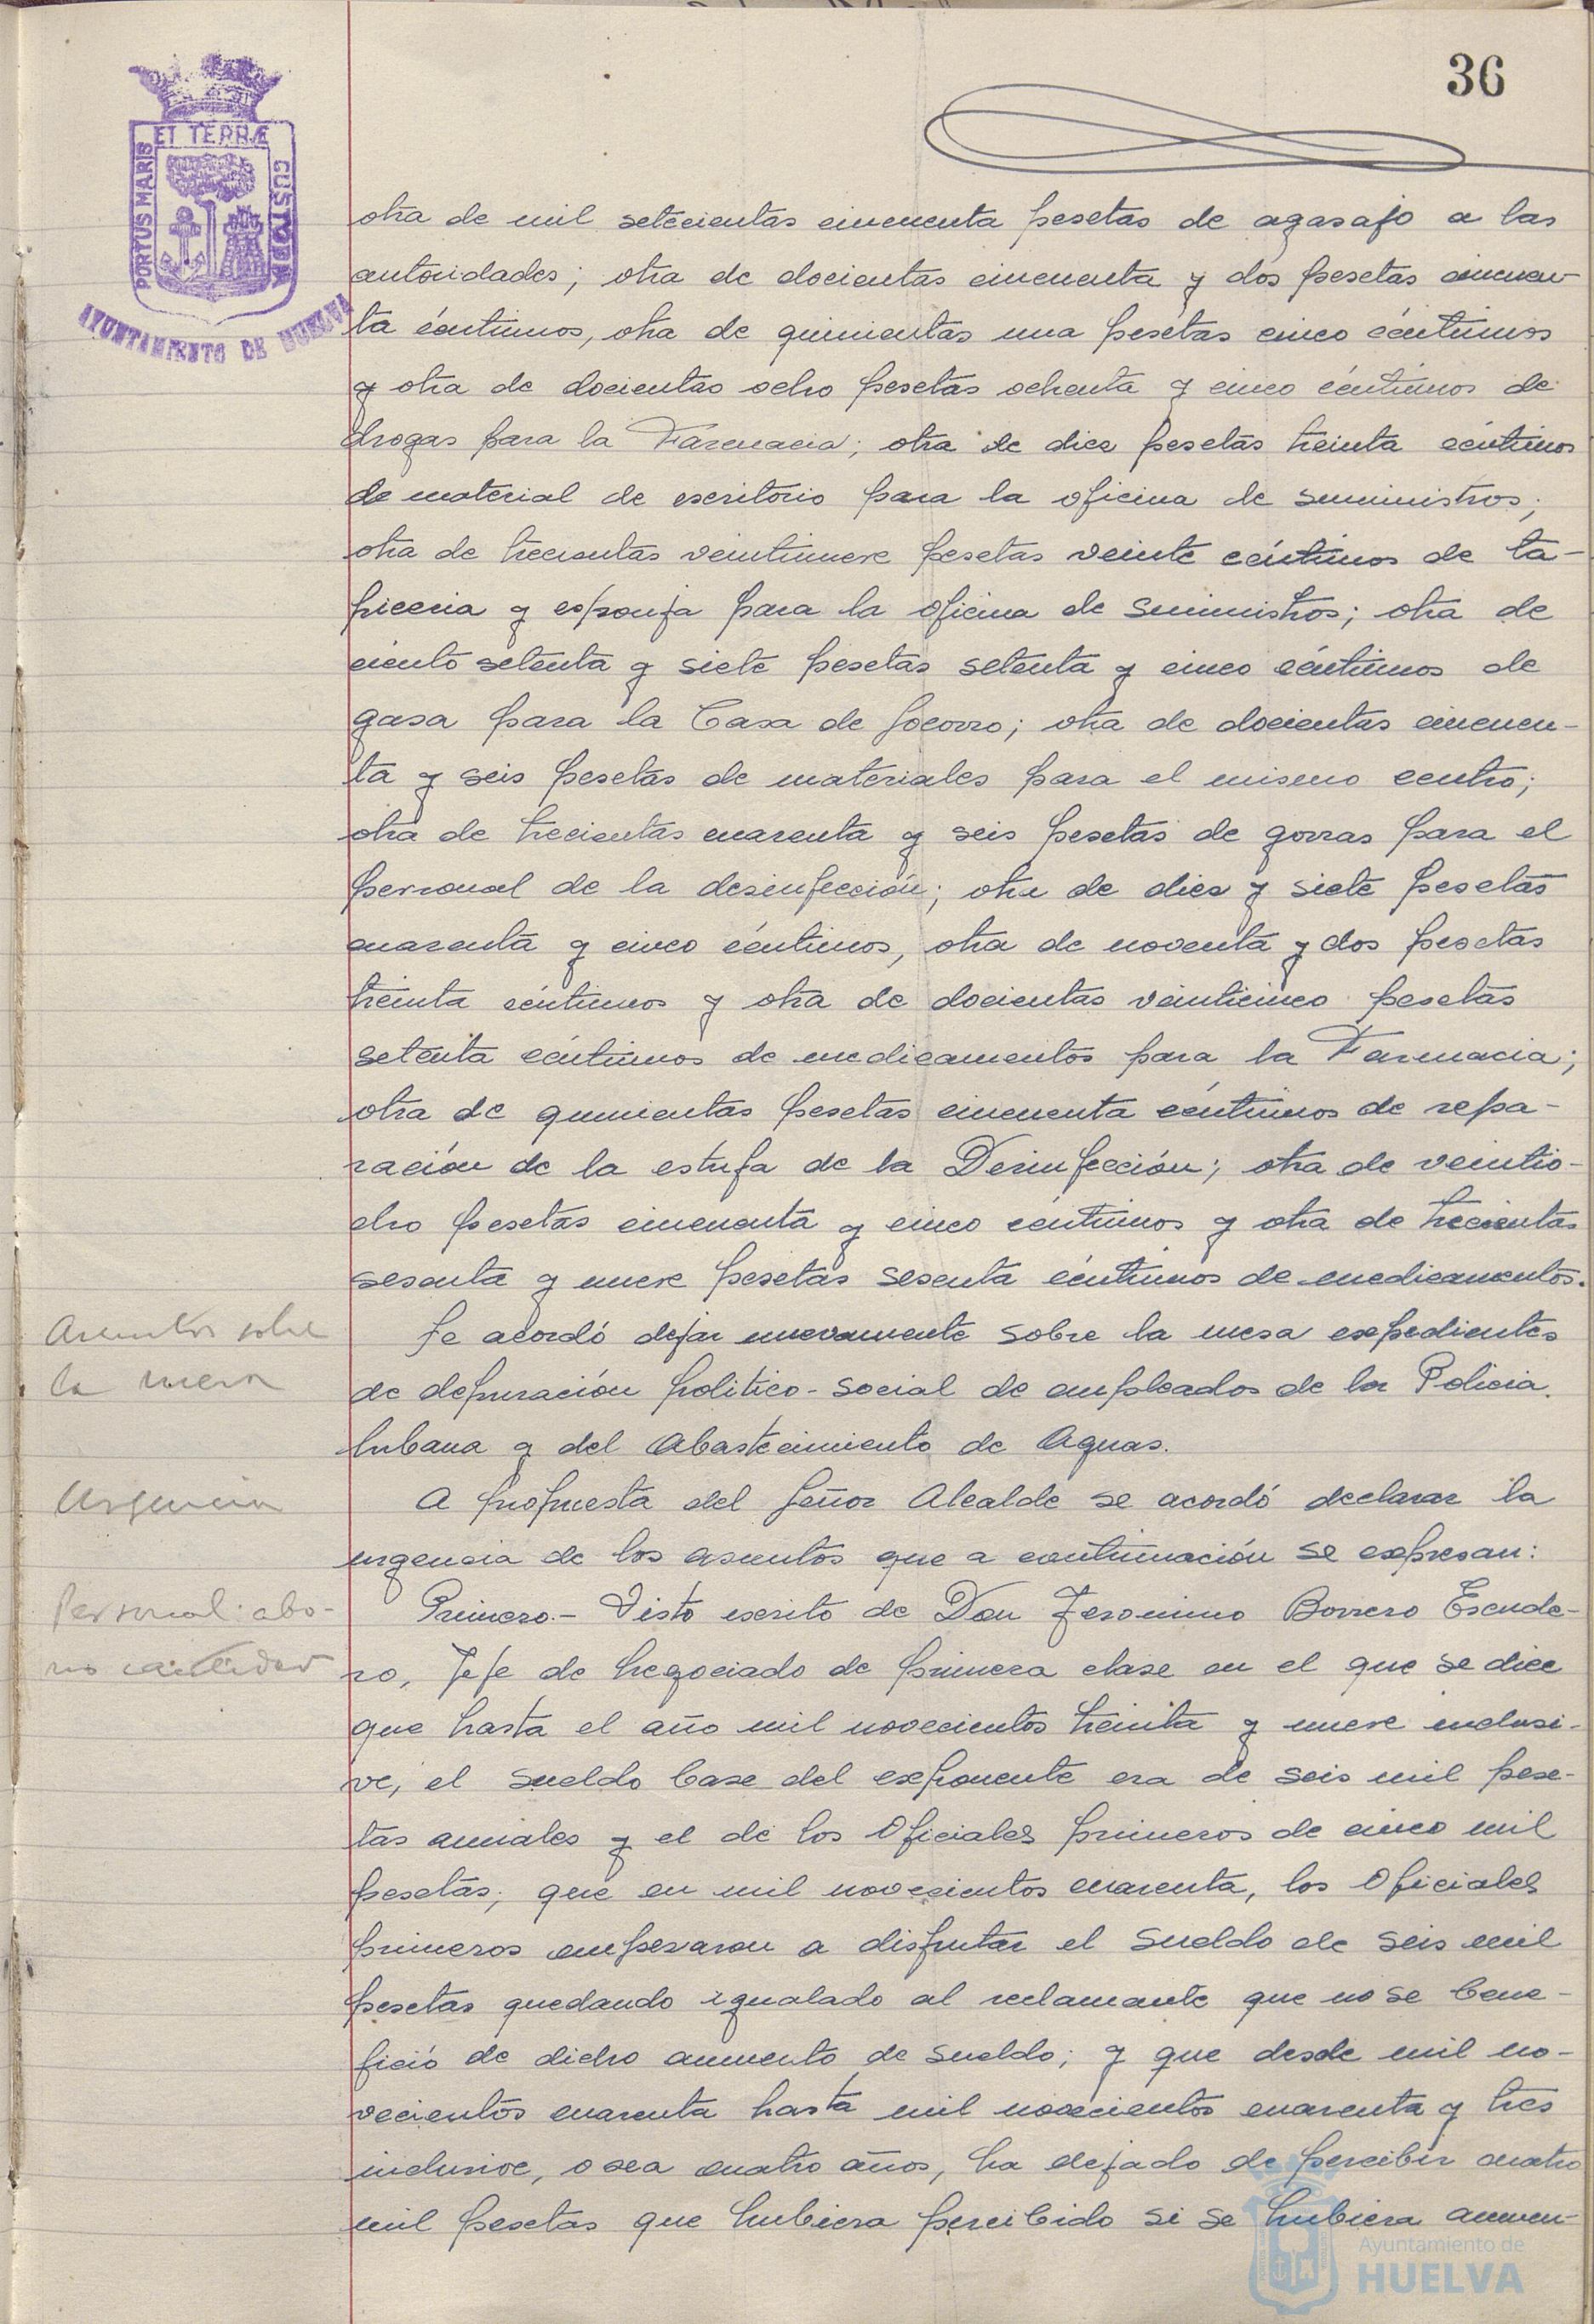 36
ET TERRÆ
PORTUS MARIS
CUSTODIA
AYUNTAMIENTO DE HUELVA
otra de mil setecientas cincuenta pesetas de agasajo a las
autoridades; otra de docientas cincuenta y dos pesetas cincuen-
ta céntimos, otra de quinientas una pesetas cinco céntimos
y otra de docientas ocho pesetas ochenta y cinco céntimos de
drogas para la Farmacia; otra de diez pesetas treinta céntimos
de material de escritorio para la oficina de suministros;
otra de trecientas veintinueve pesetas veinte céntimos de ta-
piceria y esponja para la oficina de suministros; otra de
ciento setenta y siete pesetas setenta y cinco céntimos de
gasa para la Casa de Socorro; otra de docientas cincuen-
ta y seis pesetas de materiales para el mismo centro;
otra de trecientas cuarenta y seis pesetas de gorras para el
personal de la desinfección; otra de diez y siete pesetas
cuarenta y cinco céntimos, otra de noventa y dos pesetas
treinta céntimos y otra de docientas veinticinco pesetas
setenta céntimos de medicamentos para la Farmacia;
otra de quinientas pesetas cincuenta céntimos de repa-
ración de la estufa de la Desinfección; otra de veintio-
cho pesetas cincuenta y cinco céntimos y otra de trecientas
sesenta y nueve pesetas sesenta céntimos de medicamentos.
Asuntos sobre
la mesa
Se acordó dejar nuevamente sobre la mesa expedientes
de depuración politico-social de empleados de la Policia
Urbana y del Abastecimiento de Aguas.
Urgencia
A propuesta del Señor Alcalde se acordó declarar la
urgencia de los asuntos que a continuación se expresan:
Personal: abo-
no cantidad
Primero.- Visto escrito de Don Jeronimo Borrero Escude-
ro, Jefe de Negociado de primera clase en el que se dice
que hasta el año mil novecientos treinta y nueve inclusi-
ve, el sueldo base del exponente era de seis mil pese-
tas anuales y el de los Oficiales primeros de cinco mil
pesetas; que en mil novecientos cuarenta, los Oficiales
primeros empezaron a disfrutar el sueldo de seis mil
pesetas quedando igualado al reclamante que no se bene-
fició de dicho aumento de sueldo; y que desde mil no-
vecientos cuarenta hasta mil novecientos cuarenta y tres
inclusive, o sea cuatro años, ha dejado de percibir cuatro
mil pesetas que hubiera percibido si se hubiera aumen-
Ayuntamiento de
HUELVA